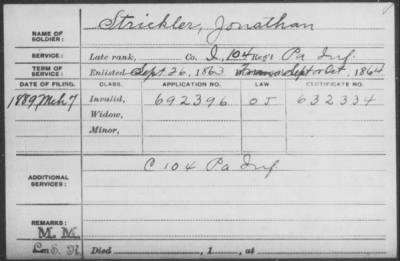 NAME OF SOLDIER: Strickler, Jonathan
SERVICE: Late rank, Co. I, 104 Reg't Pa Inf.
TERM OF SERVICE: Enlisted Sept. 26, 1863 Sept or Oct, 1864
DATE OF FILING. CLASS. APPLICATION NO. LAW CERTIFICATE NO.
1889 Mch 7 Invalid, 692396 05 632334
Widow,
Minor,
ADDITIONAL SERVICES: C 104 Pa Inf
REMARKS:
M. M.
Died , 1 , at